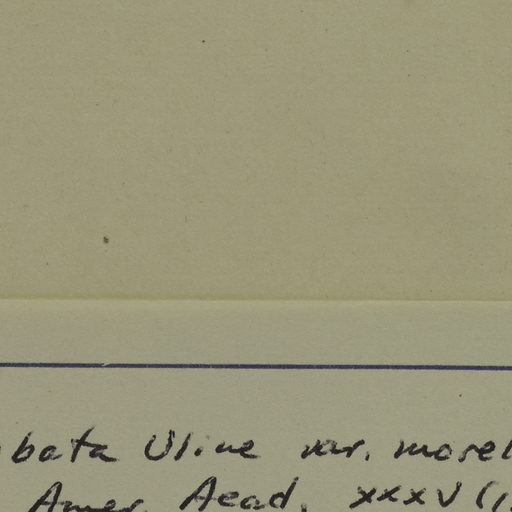 bata Uline var. morel
Amer. Acad. xxxV (1